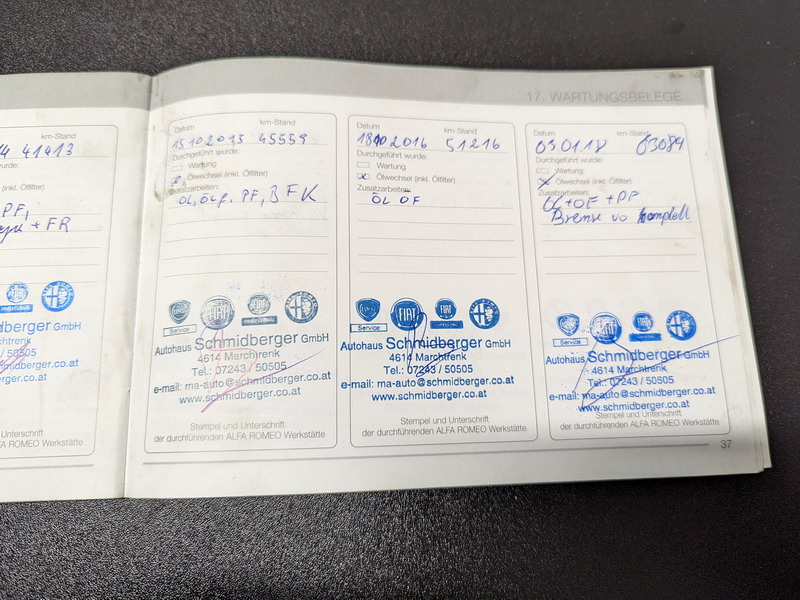 17. WARTUNGSBELEGE
km-Stand
41413
wurde:
PF,
+ FR
dberger GmbH
htrenk
/ 50505
erger.co.at
er.co.at
nd Unterschrift
ALFA ROMEO Werkstätte
Datum km-Stand
45559
Durchgeführt wurde:
Wartung
Ölwechsel (inkl. Ölfilter)
Zusatzarbeiten:
PF, BFK
Service
FIAT
Autohaus Schmidberger GmbH
4614 Marchtrenk
Tel.: 07243 / 50505
e-mail: ma-auto@schmidberger.co.at
www.schmidberger.co.at
Stempel und Unterschrift
der durchführenden ALFA ROMEO Werkstätte
Datum km-Stand
2016 51216
Durchgeführt wurde:
Wartung
Ölwechsel (inkl. Ölfilter)
Zusatzarbeiten:
ÖL OF
Service
FIAT
Autohaus Schmidberger GmbH
4614 Marchtrenk
Tel.: 07243 / 50505
e-mail: ma-auto@schmidberger.co.at
www.schmidberger.co.at
Stempel und Unterschrift
der durchführenden ALFA ROMEO Werkstätte
Datum km-Stand
Durchgeführt wurde:
Wartung
Ölwechsel (inkl. Ölfilter)
Zusatzarbeiten:
+ OF + PF
Bremse vo komplett
Service
FIAT
Autohaus Schmidberger GmbH
4614 Marchtrenk
Tel.: 07243 / 50505
e-mail: ma-auto@schmidberger.co.at
www.schmidberger.co.at
Stempel und Unterschrift
der durchführenden ALFA ROMEO Werkstätte
37